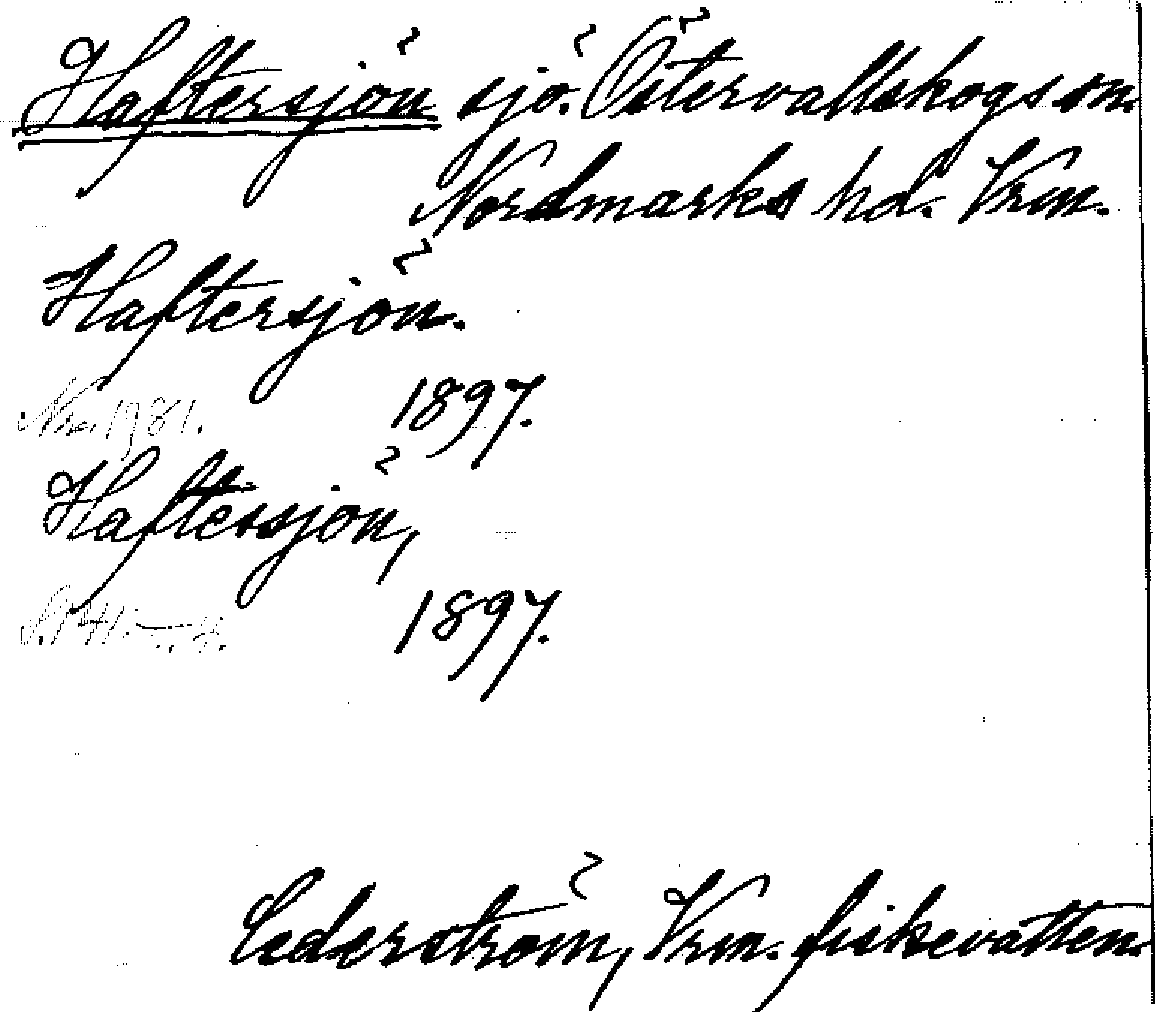 Haftersjön sjö. Östervallskogs sn.
Nordmarks hd. Vrm.
Haftersjön.
No. 1981. 1897.
Haftersjön,
1897.
Cederström, Vrm. fiskevatten.